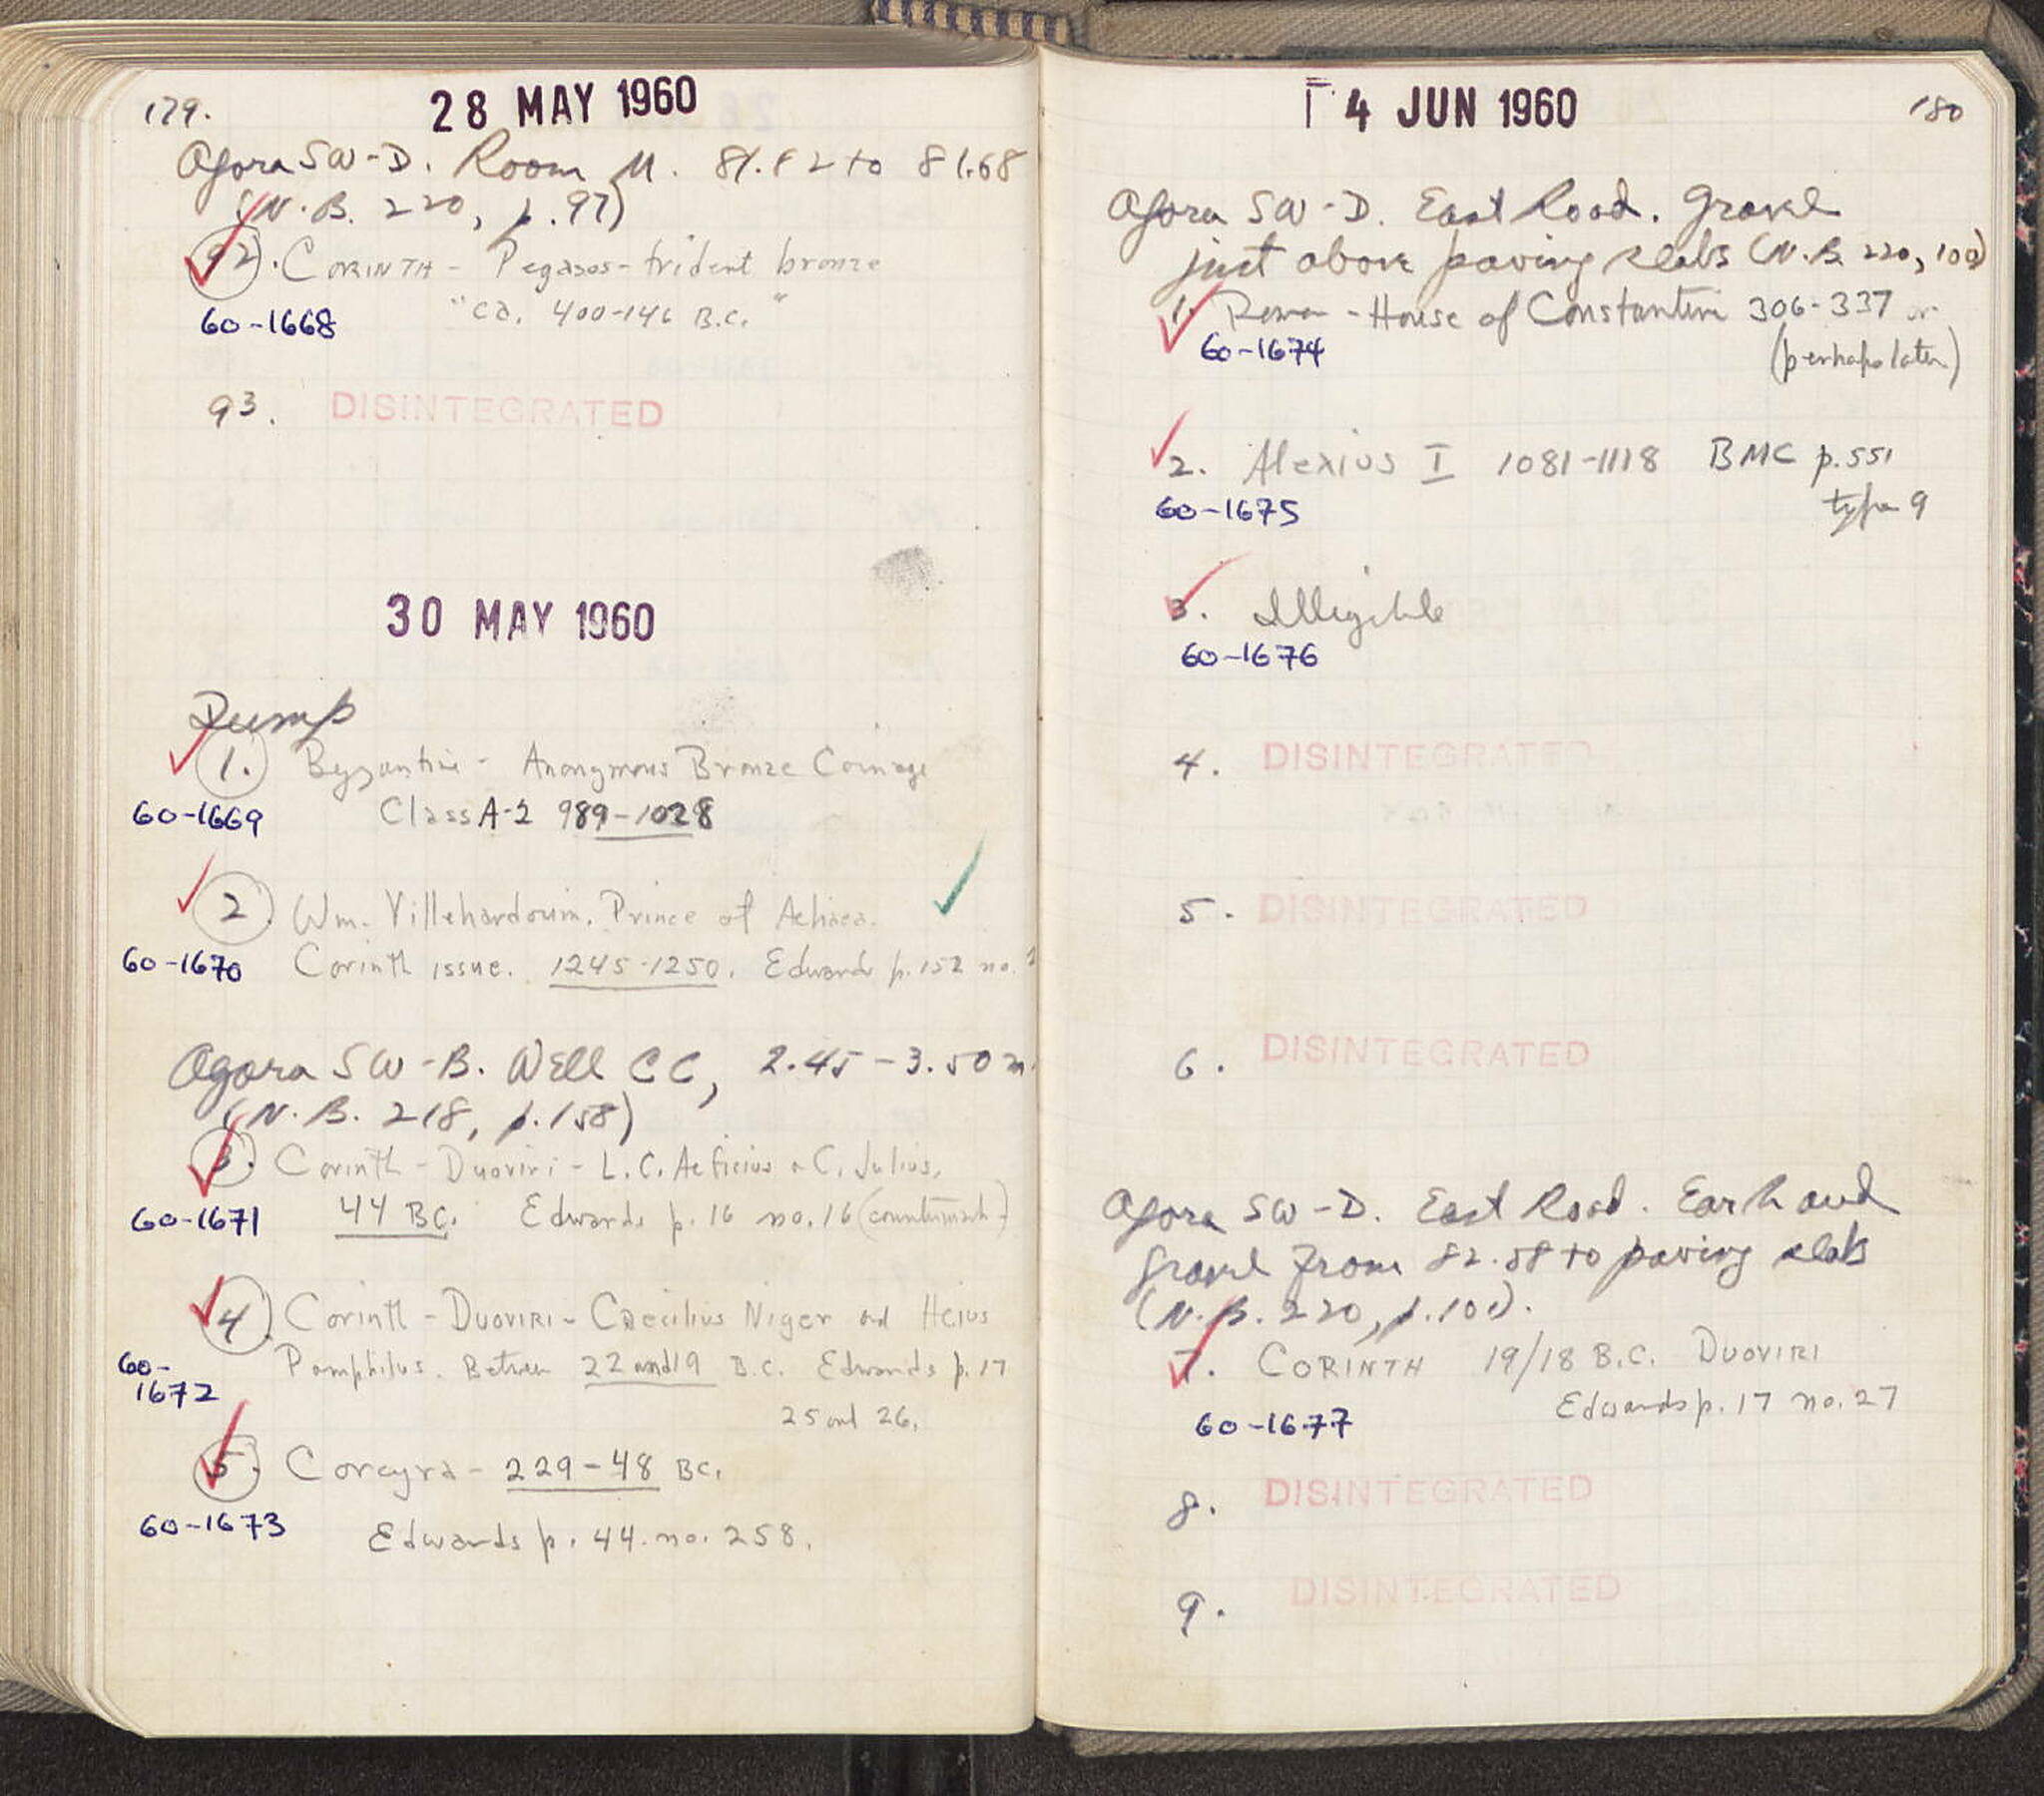 179.
28 MAY 1960
Agora SW-D. Room M. 81.82 to 81.68
(N.B. 220, p.97)
92. CORINTH - Pegasos-trident bronze
60-1668 "ca. 400-146 B.C."
93. DISINTEGRATED
30 MAY 1960
Dump
1. Byzantine - Anonymous Bronze Coinage
60-1669 Class A-2 989-1028
2. Wm. Villehardouin. Prince of Achaea.
60-1670 Corinth issue. 1245-1250. Edwards p. 152 no.
Agora SW-B. Well CC, 2.45-3.50 m.
(N.B. 218, p.158)
3. Corinth - Duoviri - L.C. Aeficius & C. Julius.
60-1671 44 BC. Edwards p. 16 no. 16 (countermark)
4. Corinth - DUOVIRI - Caecilius Niger and Heius
60-1672 Pamphilus. Between 22 and 19 B.C. Edwards p. 17
25 and 26.
5. Corcyra - 229-48 BC.
60-1673
Edwards p. 44. no. 258.
4 JUN 1960
180
Agora SW-D. East Road. Gravel
just above paving slabs (N.B. 220, 100)
1. Roman - House of Constantine 306-337 or
60-1674 (perhaps later)
2. Alexius I 1081-1118 BMC p.551
60-1675 type 9
3. Illegible
60-1676
4. DISINTEGRATED
5. DISINTEGRATED
6. DISINTEGRATED
Agora SW-D. East Road. Earth and
gravel from 82.58 to paving slabs
(N.B. 220, p.100).
7. CORINTH 19/18 B.C. DUOVIRI
Edwards p. 17 no. 27
60-1677
8. DISINTEGRATED
9. DISINTEGRATED